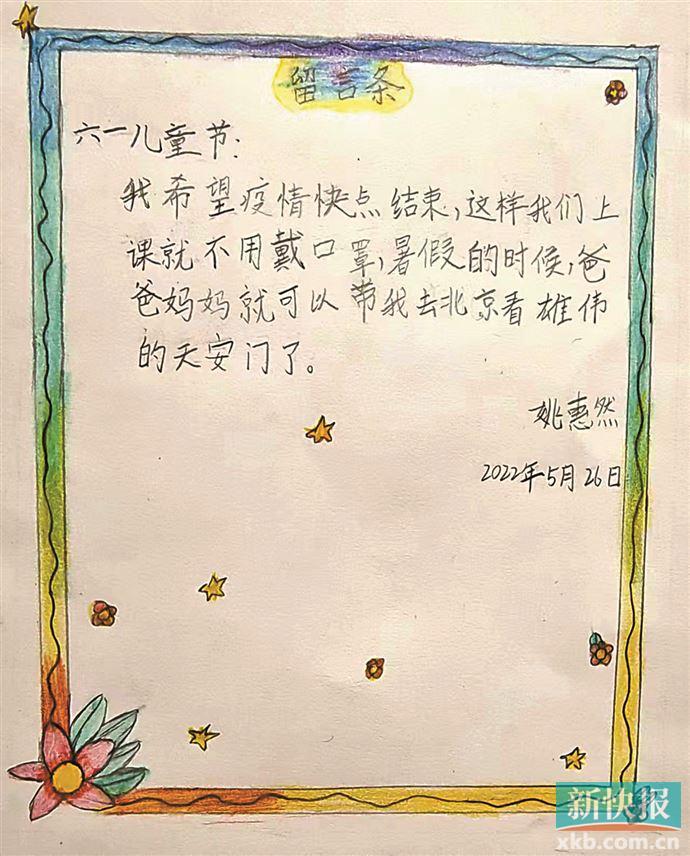 留言条
六一儿童节:
我希望疫情快点结束,这样我们上
课就不用戴口罩,暑假的时候,爸
爸妈妈就可以带我去北京看雄伟
的天安门了。
姚惠然
2022年5月26日
新快报
xkb.com.cn